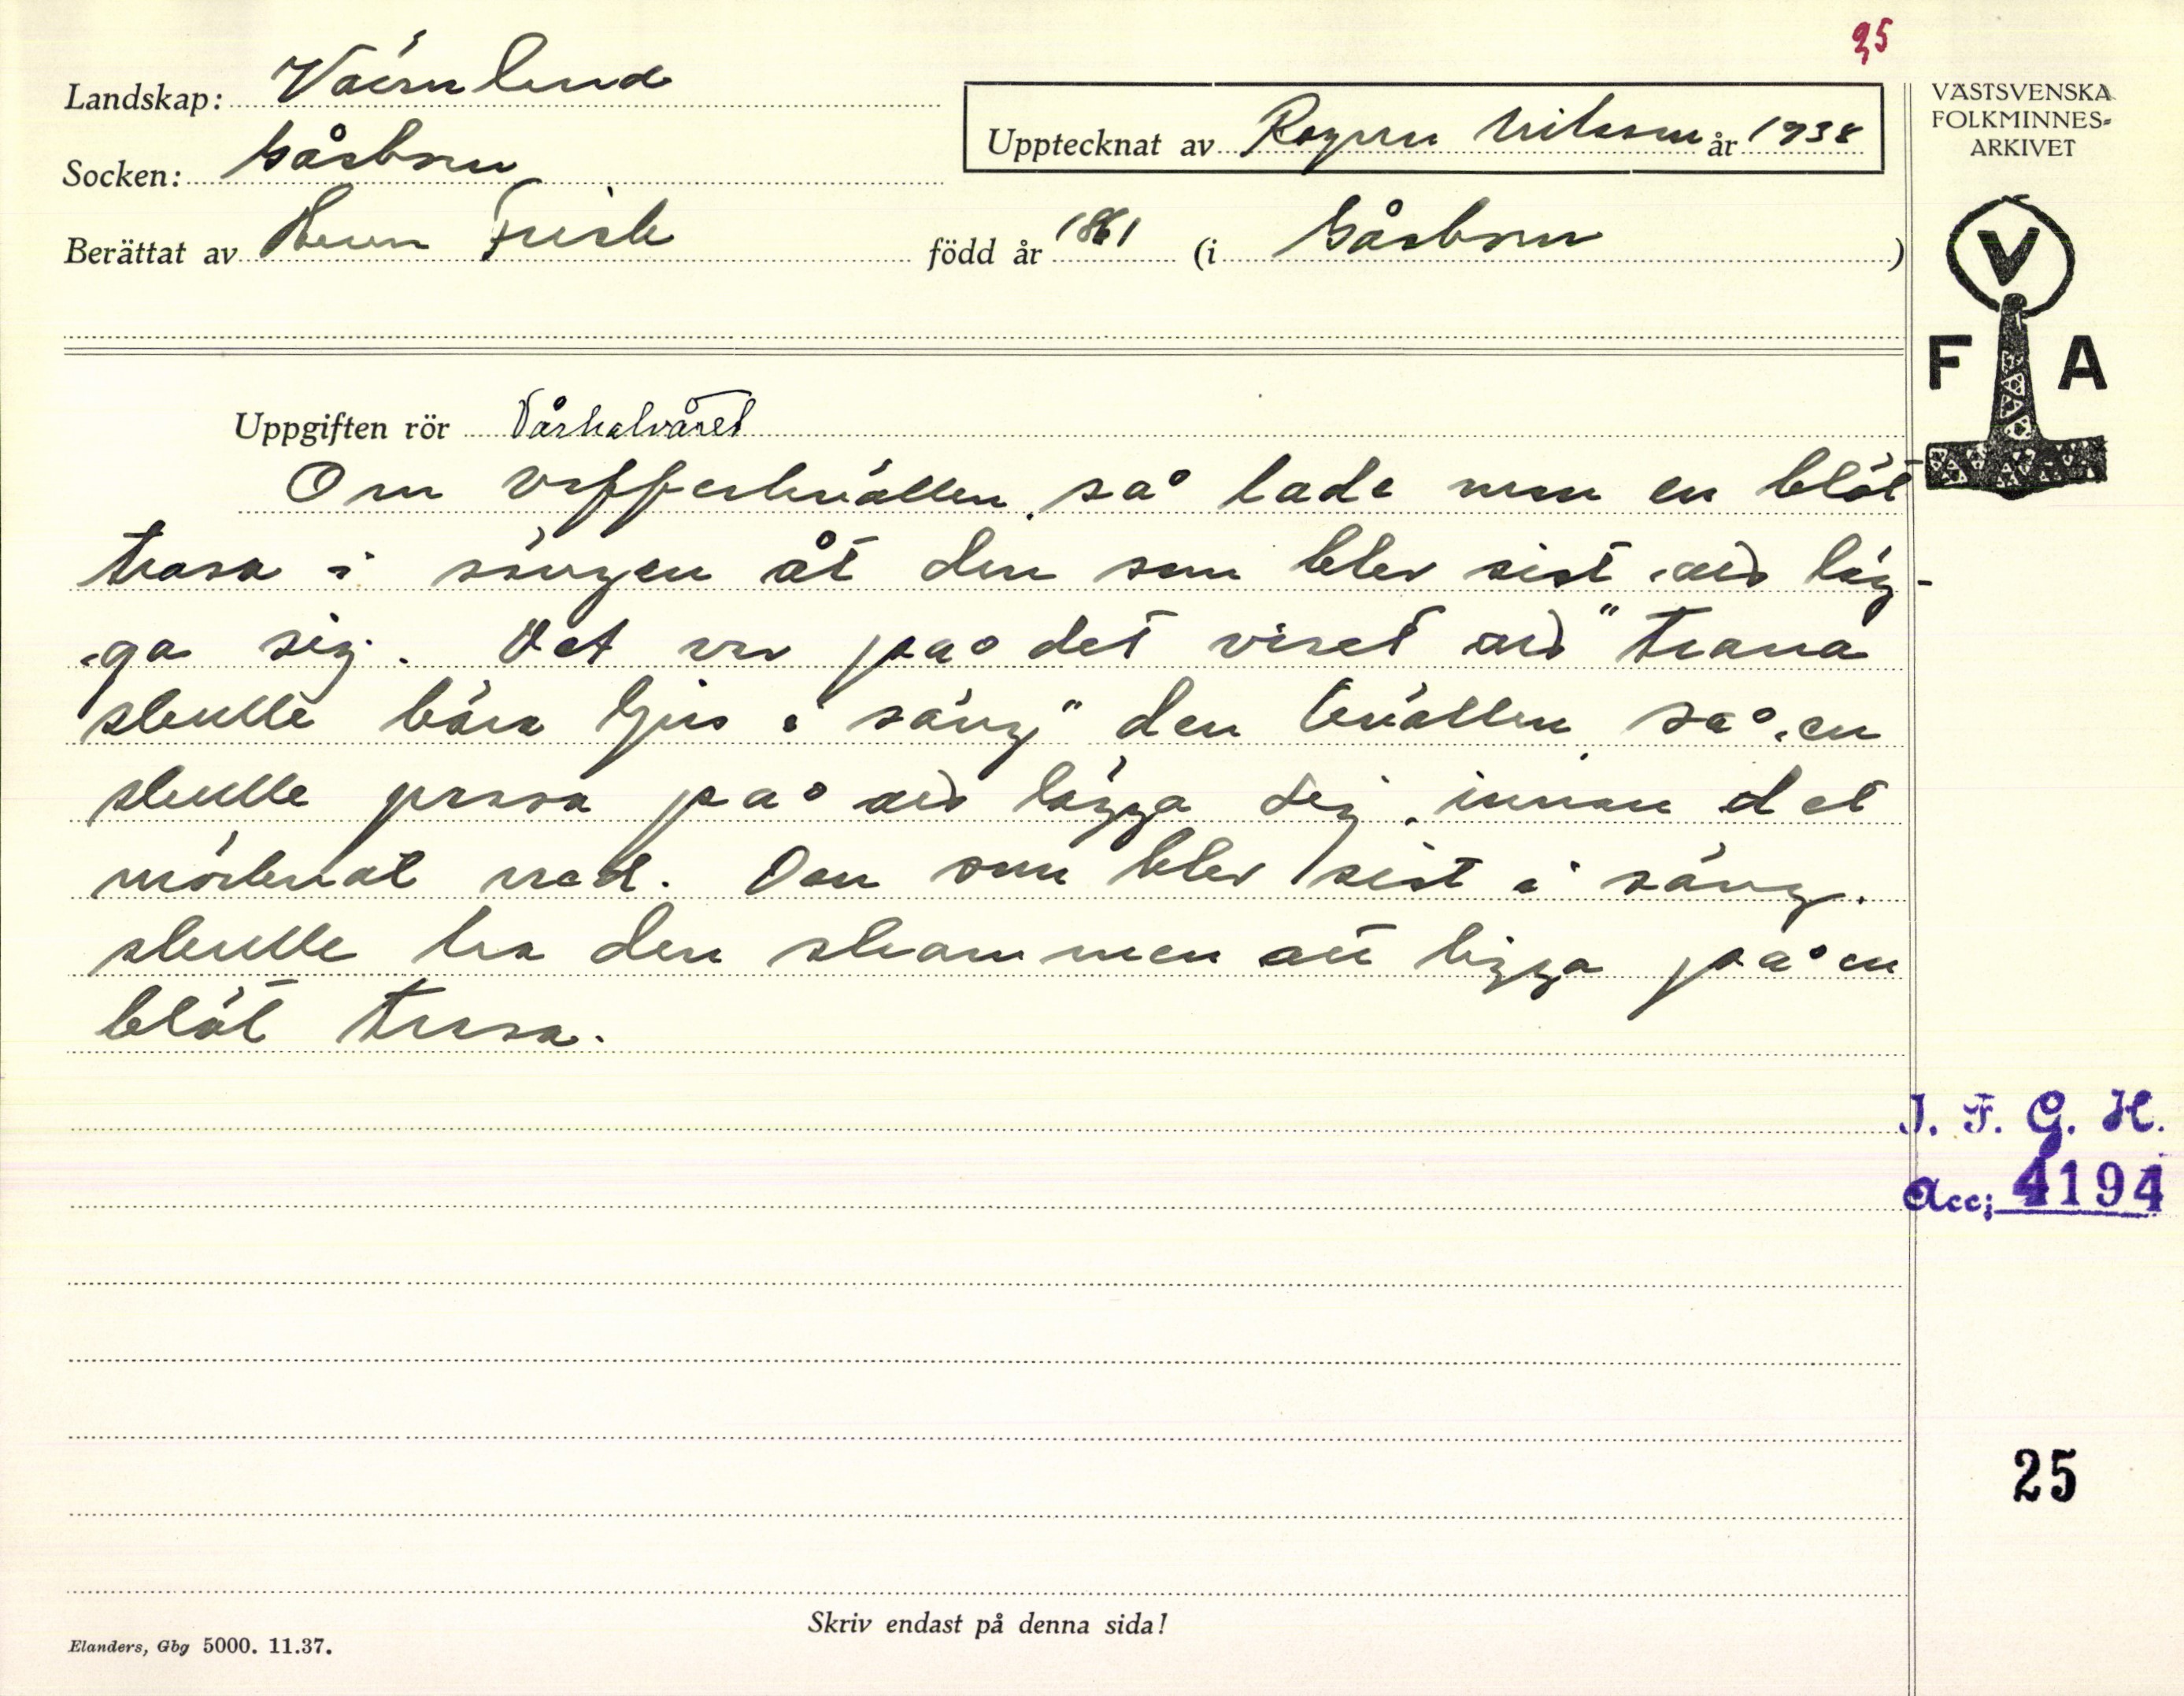 35
Landskap: Värmland
Upptecknat av Ragnar Nilsson år 1938
VÄSTSVENSKA
FOLKMINNES-
ARKIVET
Socken: Gåsborn
Berättat av Frisk född år 1861 (i Gåsborn)
V
F A
Uppgiften rör Vårhalvåret
Om vafferkvällen, så lade man en blöt
trasa i sängen åt den som blev sist att läg-
ga sig. Det var på det viset att "trana
skulle bära ljus i säng" den kvällen, så en
skulle passa på att lägga sig, innan det
mörknat med. Den som blev sist i säng.
skulle ha den skammen att ligga på en
blöt trasa.
I. F. G. H.
Acc; 4194
25
Skriv endast på denna sida!
Elanders, Gbg 5000. 11.37.